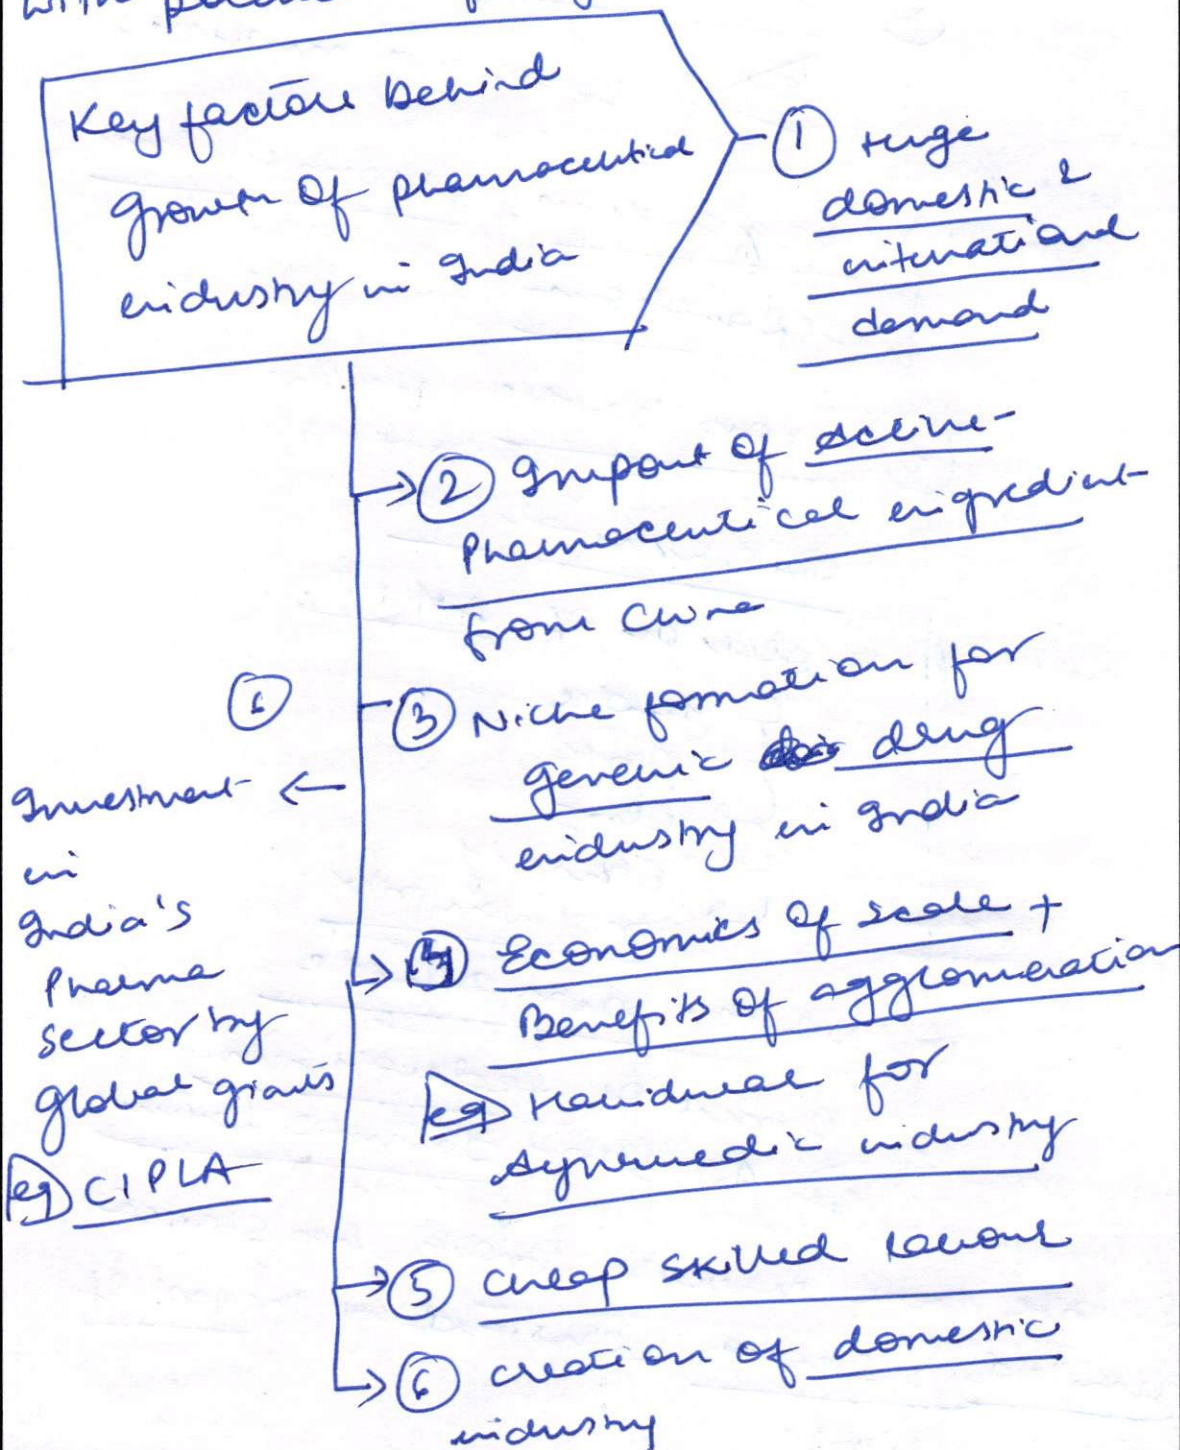 Key factors behind
growth of pharmaceutical
industry in India
① Huge
domestic &
international
demand
② Import of Active-
Pharmaceutical ingredient
from China
③ Niche formation for
generic drug
industry in India
④ Economics of scale +
Benefits of agglomeration
eg Haridwar for
Ayurvedic industry
⑤ cheap skilled labour
⑥ creation of domestic
industry
⑥
Investment
in
India's
Pharma
sector by
global giants
eg CIPLA